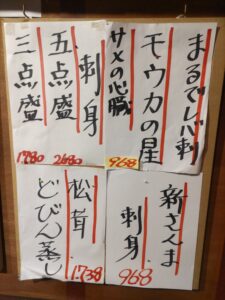 まるでレバ刺
モウカの星
サメの心臓
968
刺身
五点盛
2680
三点盛
1780
新さんま
刺身
968
松茸
どびん蒸し
1.738